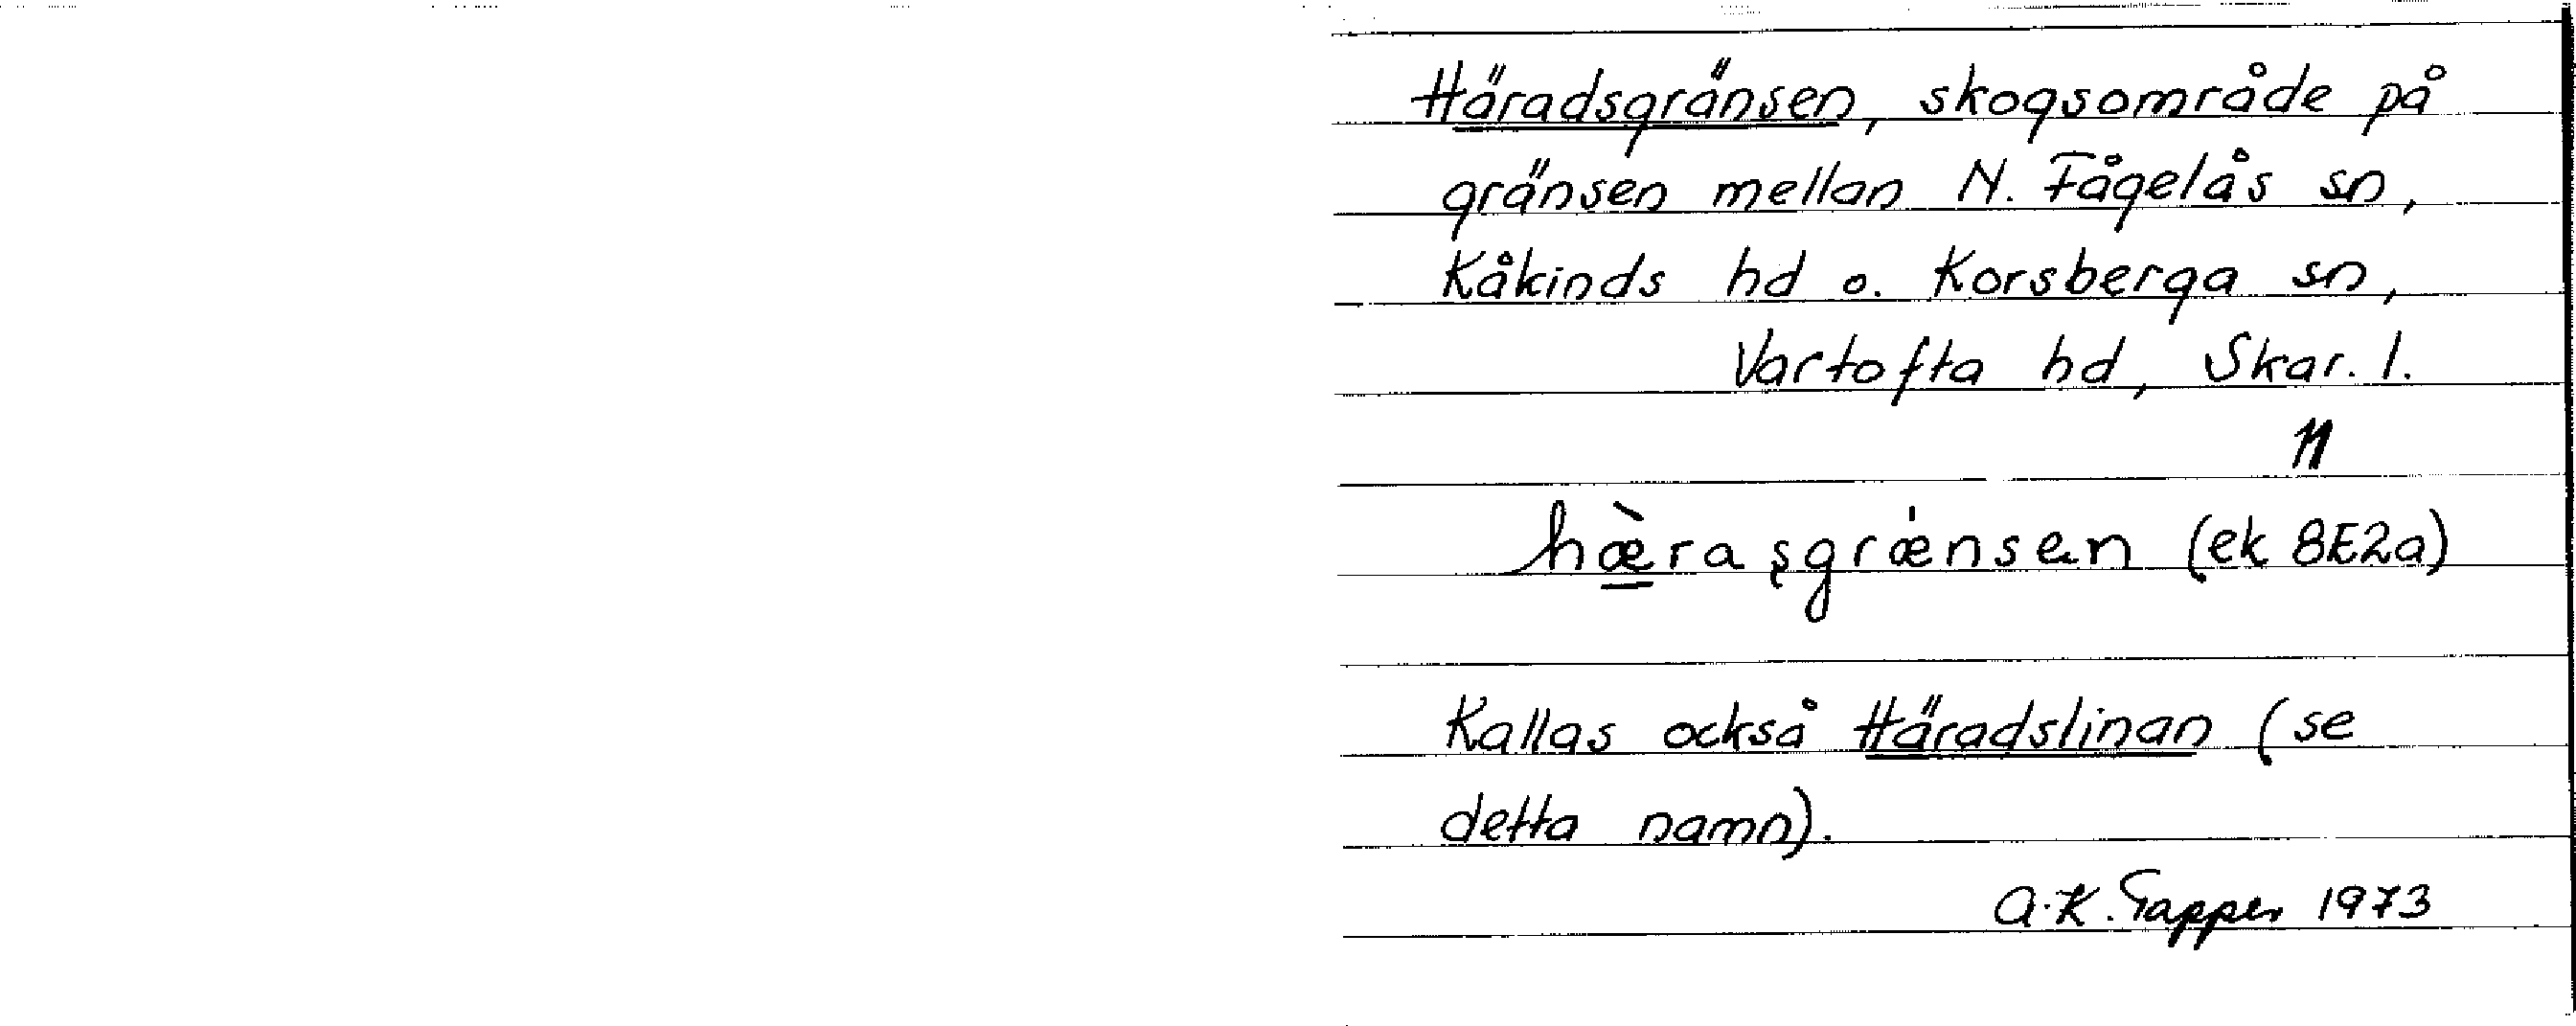 Häradsgränsen, skogsområde på
gränsen mellan N. Fågelås sn,
Kåkinds hd o. Korsberga sn,
Vartofta hd, Skar. l.
hæ̀rasgrænsen (ek 8E2a)
Kallas också Häradslinan (se
detta namn).
A.K. Tapper 1973